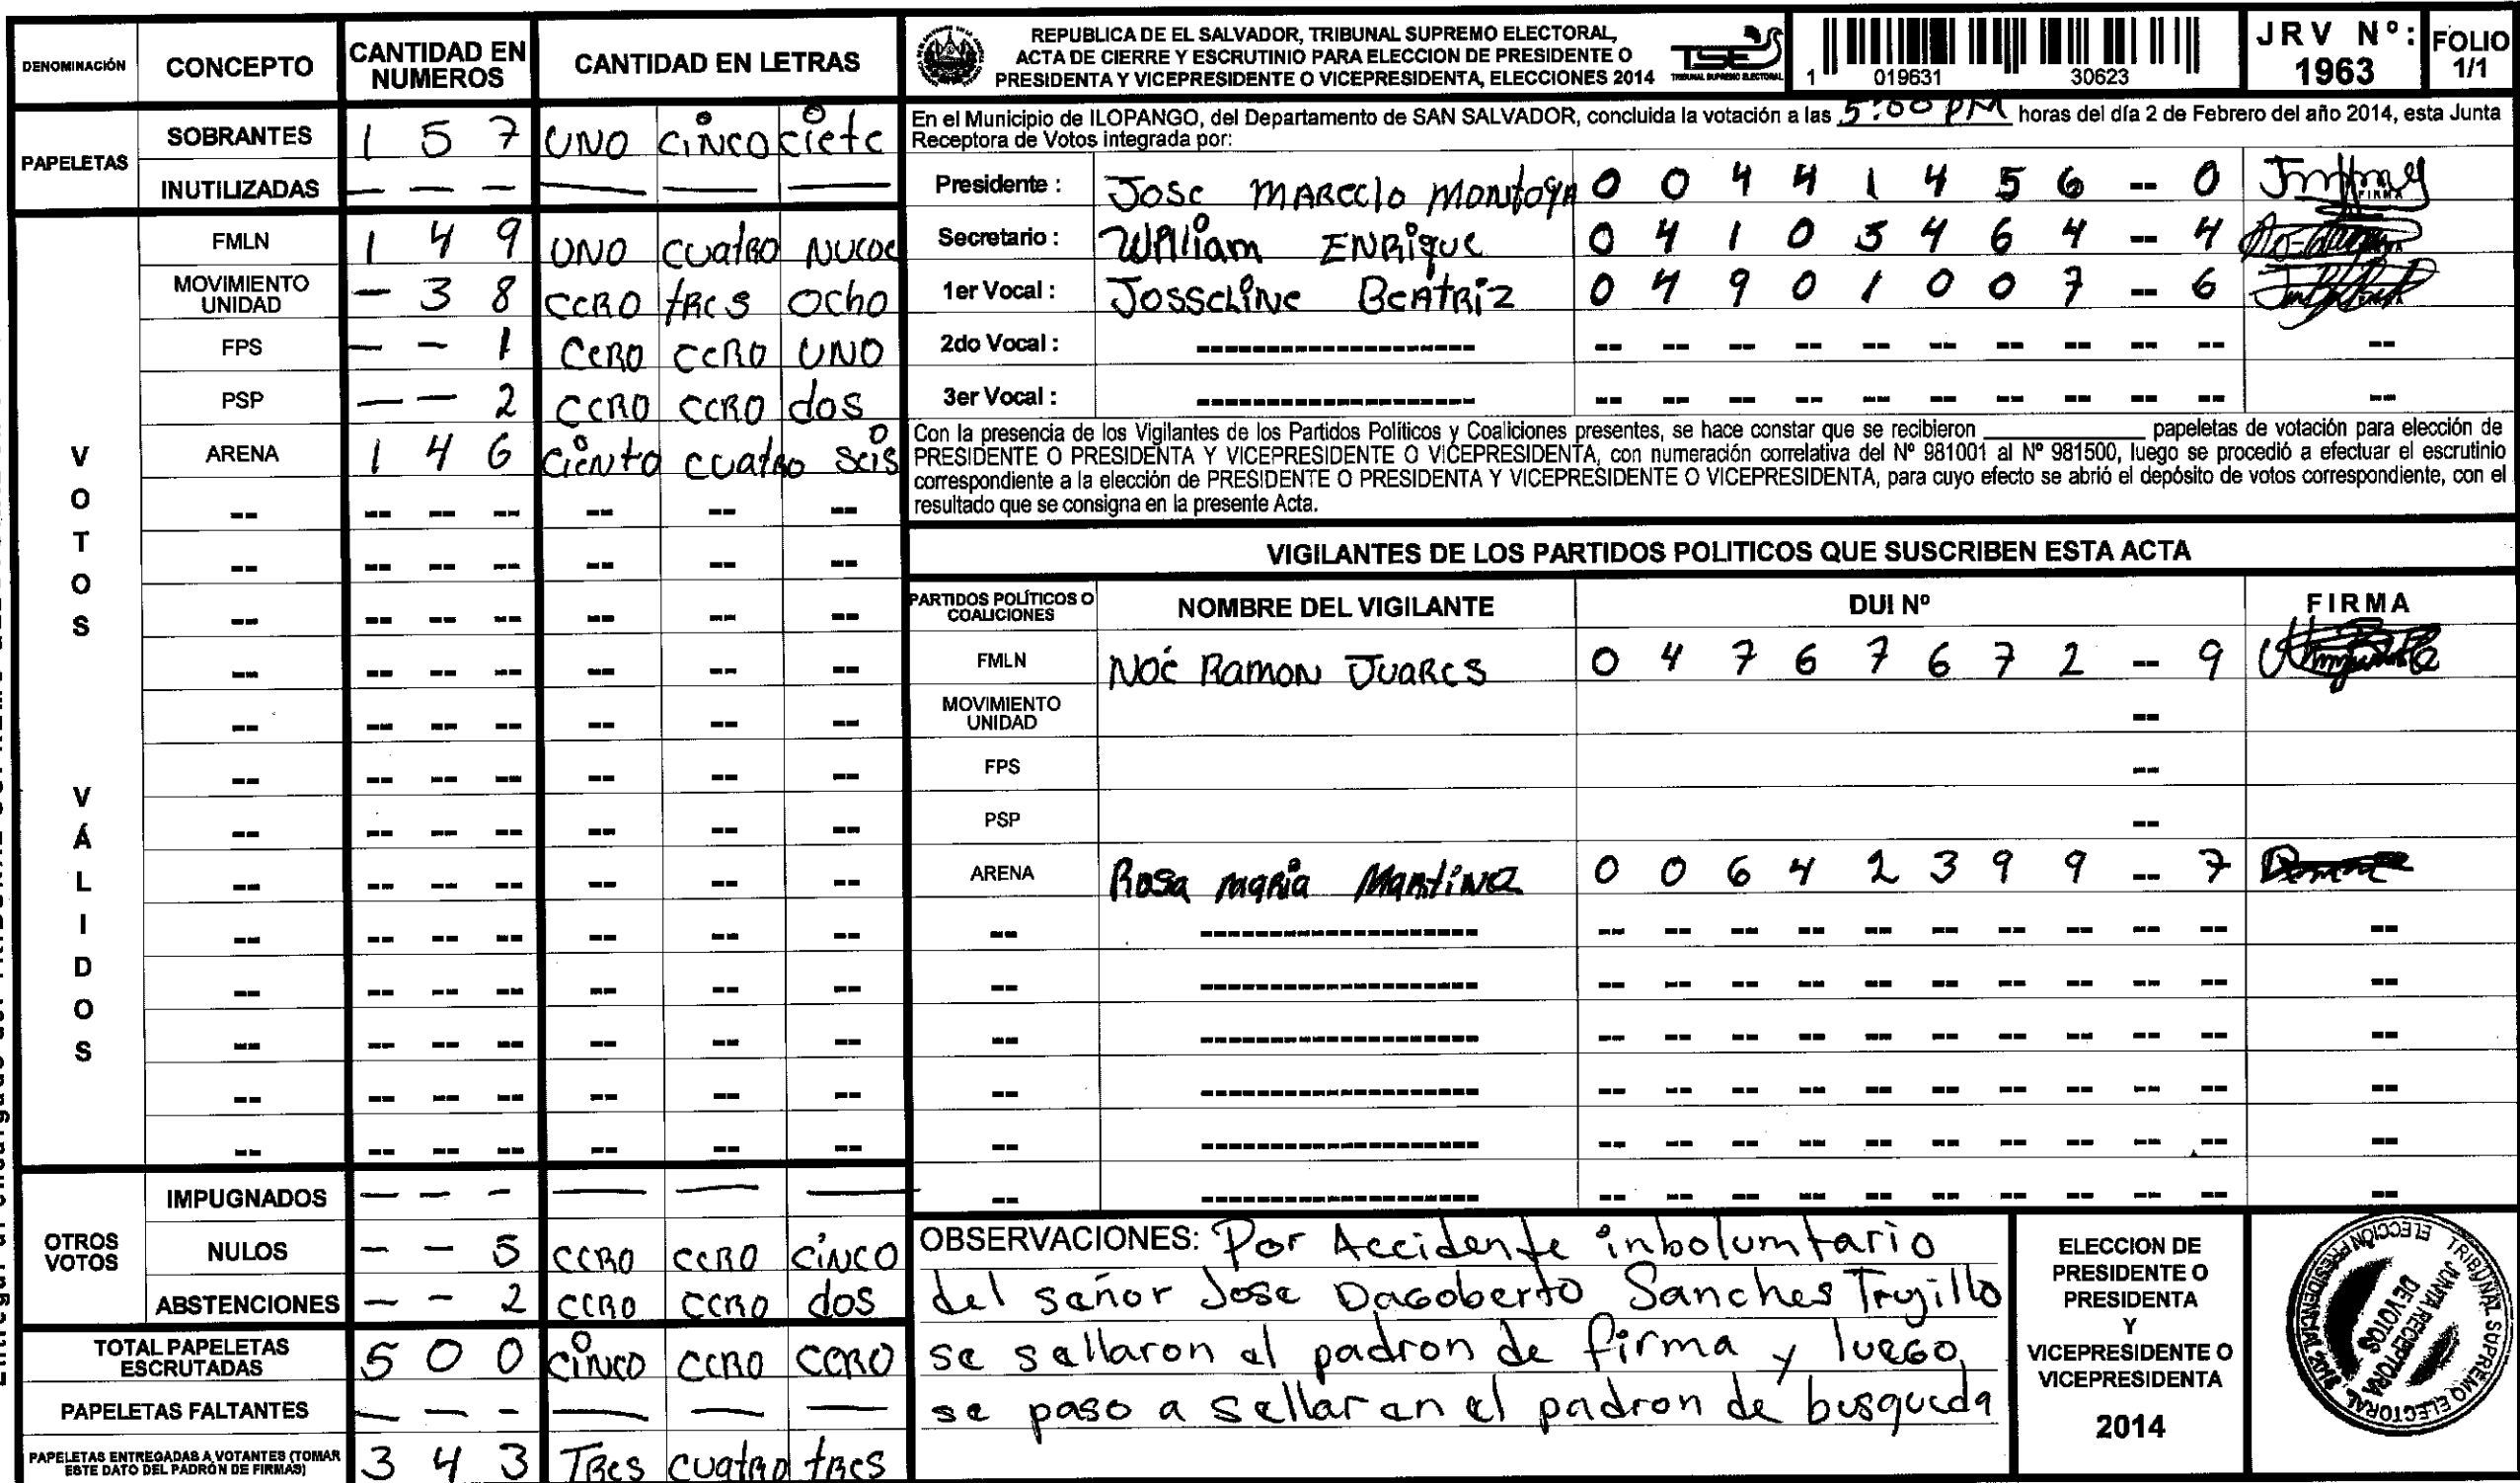 DENOMINACIÓN CONCEPTO CANTIDAD EN NUMEROS CANTIDAD EN LETRAS
PAPELETAS
SOBRANTES 1 5 7 UNO CiNCO Ciete
INUTILIZADAS — — — — — —
VOTOS VÁLIDOS
FMLN 1 4 9 UNO CUatRO NUeve
MOVIMIENTO UNIDAD — 3 8 CeRO tRes Ocho
FPS — — 1 CeRO CeRO UNO
PSP — — 2 CeRO CeRO dos
ARENA 1 4 6 CieNto CUatRO Seis
OTROS VOTOS
IMPUGNADOS — — — — — —
NULOS — — 5 CeRO CeRO CiNCO
ABSTENCIONES — — 2 CeRO CeRO dos
TOTAL PAPELETAS ESCRUTADAS 5 0 0 CiNCO CeRO CeRO
PAPELETAS FALTANTES — — — — — —
PAPELETAS ENTREGADAS A VOTANTES (TOMAR ESTE DATO DEL PADRÓN DE FIRMAS) 3 4 3 TRes CUatRO tRes
REPUBLICA DE EL SALVADOR, TRIBUNAL SUPREMO ELECTORAL,
ACTA DE CIERRE Y ESCRUTINIO PARA ELECCION DE PRESIDENTE O
PRESIDENTA Y VICEPRESIDENTE O VICEPRESIDENTA, ELECCIONES 2014
TSE
TRIBUNAL SUPREMO ELECTORAL
1 019631 30623
JRV Nº: 1963
FOLIO 1/1
En el Municipio de ILOPANGO, del Departamento de SAN SALVADOR, concluida la votación a las 5:00 PM horas del día 2 de Febrero del año 2014, esta Junta
Receptora de Votos integrada por:
Presidente : Jose MARCelo MoNtoyA 0 0 4 4 1 4 5 6 -- 0
Secretario : William ENRique 0 4 1 0 3 4 6 4 -- 4
1er Vocal : JosseliNe BeAtRiz 0 4 9 0 1 0 0 7 -- 6
2do Vocal :
3er Vocal :
Con la presencia de los Vigilantes de los Partidos Políticos y Coaliciones presentes, se hace constar que se recibieron ____ papeletas de votación para elección de
PRESIDENTE O PRESIDENTA Y VICEPRESIDENTE O VICEPRESIDENTA, con numeración correlativa del Nº 981001 al Nº 981500, luego se procedió a efectuar el escrutinio
correspondiente a la elección de PRESIDENTE O PRESIDENTA Y VICEPRESIDENTE O VICEPRESIDENTA, para cuyo efecto se abrió el depósito de votos correspondiente, con el
resultado que se consigna en la presente Acta.
VIGILANTES DE LOS PARTIDOS POLITICOS QUE SUSCRIBEN ESTA ACTA
PARTIDOS POLÍTICOS O COALICIONES NOMBRE DEL VIGILANTE DUI Nº FIRMA
FMLN Noé Ramon JuaRes 0 4 7 6 7 6 7 2 -- 9
MOVIMIENTO UNIDAD --
FPS --
PSP --
ARENA Rosa maRia MaRtiNez 0 0 6 4 2 3 9 9 -- 7
OBSERVACIONES: Por Accidente inbolumtario
del señor Jose Dagoberto Sanches Trujillo
se sellaron el padron de firma y luego,
se paso a sellar en el padron de busqueda
ELECCION DE
PRESIDENTE O
PRESIDENTA
Y
VICEPRESIDENTE O
VICEPRESIDENTA
2014
TRIBUNAL SUPREMO ELECTORAL
JUNTA RECEPTORA
DE VOTOS